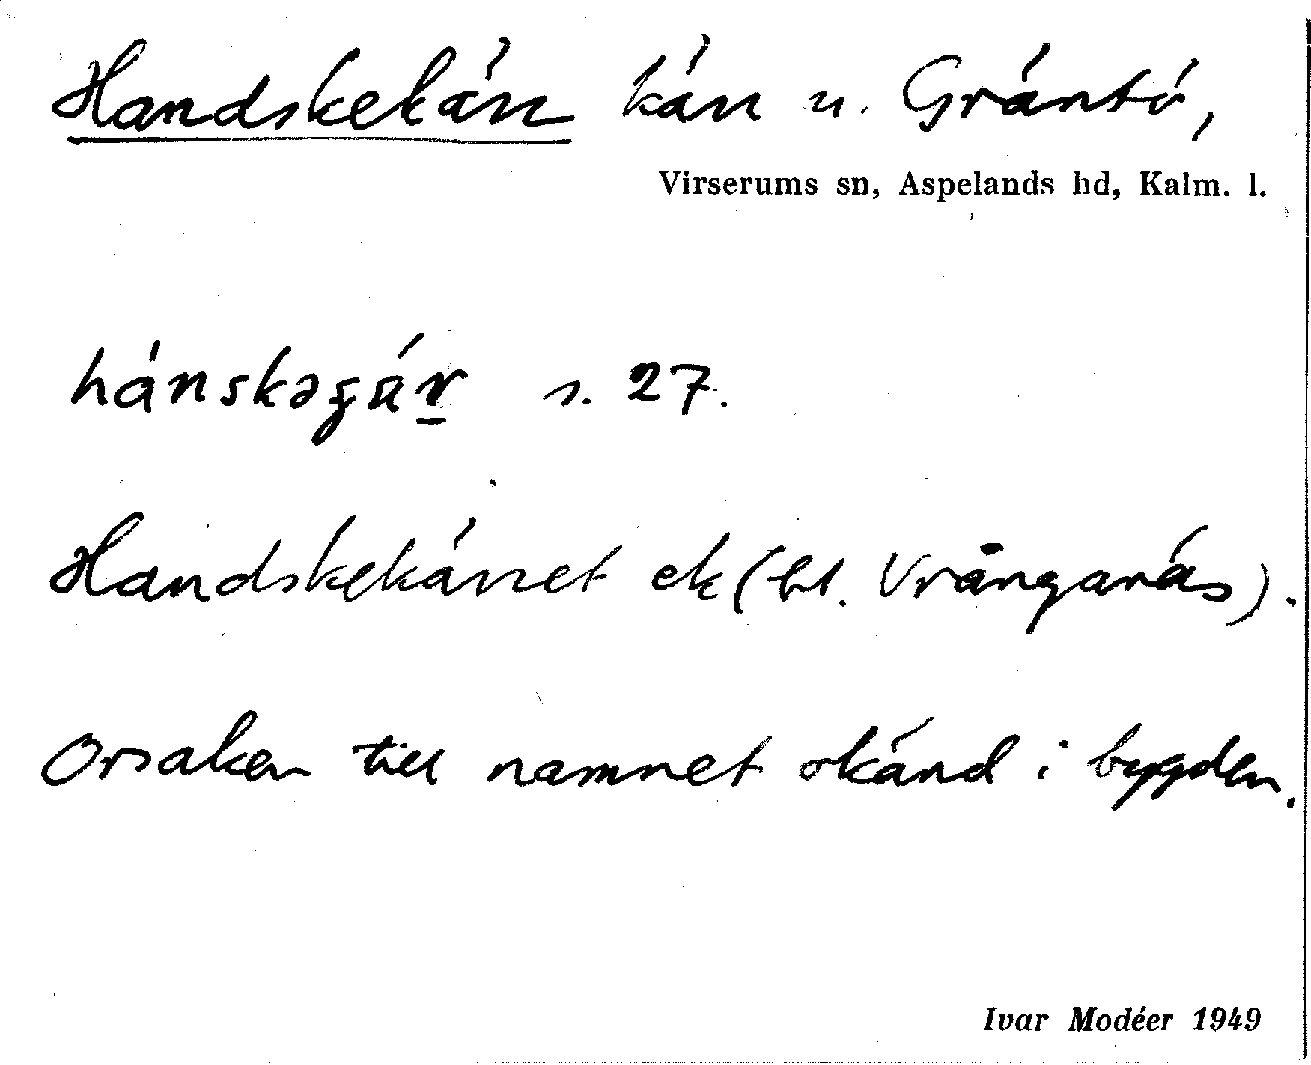 Handskekärr kärr u. Gräntö,
Virserums sn, Aspelands hd, Kalm. l.
s. 27.
Handskekärret ek (bl. Vrånganäs).
Orsaken till namnet okänd i bygden.
Ivar Modéer 1949